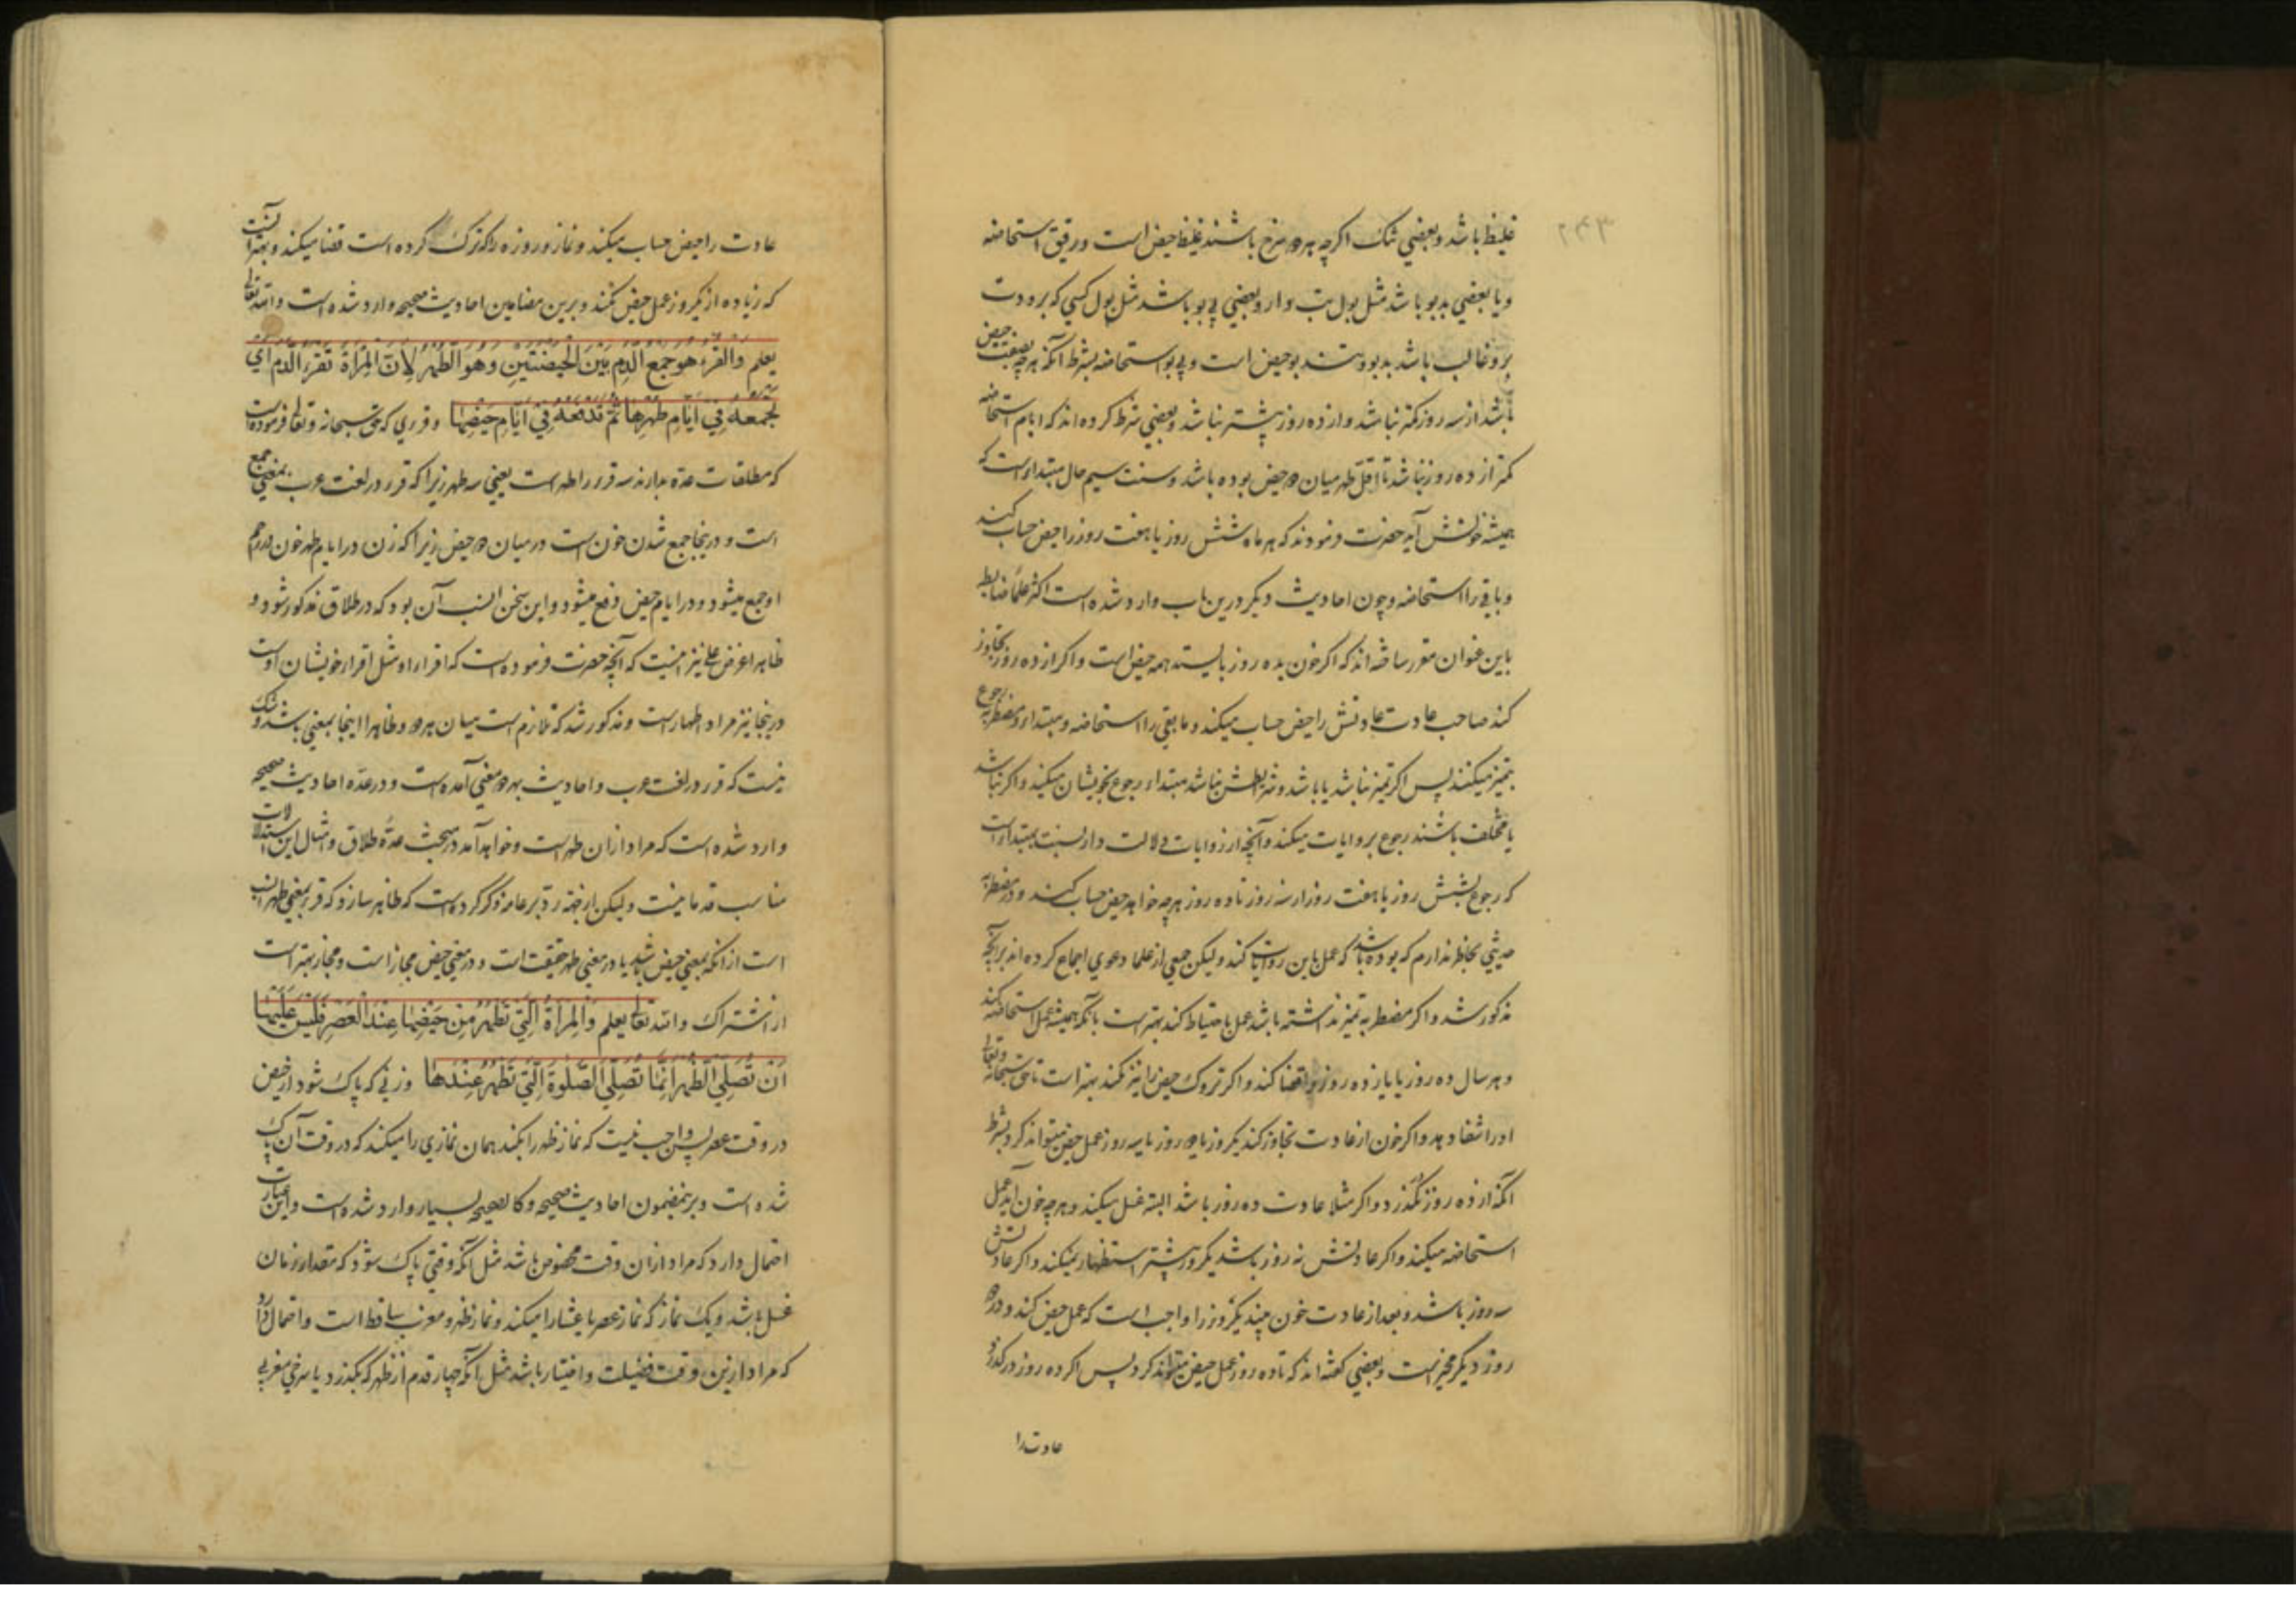 ۲۴۳
غلیظ باشد و بعضی تنک اکرچه هر دو سرخ باشند غلیظ حیض است و رقیق استحاضه
و یا بعضی بدبو باشد مثل بول تب دار و بعضی بی بو باشد مثل بول کسی که برودت
برو غالب باشد بدبو و تند بو حیض است و بی بو استحاضه بشرط آنکه هر چه بصفت حیض
باشد از سه روز کمتر نباشد و از ده روز بیشتر نباشد و بعضی شرط کرده اند که ایام استحاضه
کمتر از ده روز نباشد تا اقل طهر میان دو حیض بوده باشد و سنت سیم حال مبتداه است که
همیشه خونش آید حضرت فرمودند که هر ماه شش روز یا هفت روز را حیض حساب کند
و باقی را استحاضه و چون احادیث دیکر درین باب وارد شده است اکثر علما ضابطه
باین عنوان مقرر ساخته اند که اکر خون بده روز بایستد همه حیض است و اکر از ده روز تجاوز
کند صاحب عادت عادتش را حیض حساب میکند و مابقی را استحاضه و مبتداء و مضطربه رجوع
بتمیز میکنند پس اکر تمیز نباشد یا باشد و شرایطش نباشد مبتداء رجوع بخویشان میکند و اکر نباشد
یا مختلف باشند رجوع بروایات میکند و آنچه از روایات دلالت دارد نسبت بمبتداء است
که رجوع بشش روز یا هفت روز از سه روز تا ده روز هر چه خواهد حیض حساب کند و در مضطربه
حدیثی بخاطر ندارم که بوده باشد که عمل باین روایات کند ولیکن جمعی از علما دعوی اجماع کرده اند بر آنچه
مذکور شد و اکر مضطربه تمیز نداشته باشد عمل باحتیاط کند بهتر است بآنکه همیشه عمل استحاضه کند
و هر سال ده روز یا یازده روز را قضا کند و اکر تروک حیض را نیز کند بهتر است تا حق سبحانه و تعالی
او را شفا دهد و اکر خون از عادت تجاوز کند یکروز یا دو روز یا سه روز عمل حیض میتواند کرد بشرط
آنکه از ده روز نکذرد و اکر مثلا عادت ده روز باشد البته غسل میکند و هر چه خون آید عمل
استحاضه میکند و اکر عادتش نه روز باشد یکروز بیشتر استظهار نمیکند و اکر عادتش
سه روز باشد و بعد از عادت خون بیند یکروز را واجب است که عمل حیض کند و در دو
روز دیکر مخیر است و بعضی کفته اند که تا ده روز عمل حیض میتواند کرد پس اکر ده روز درکذرد
عادت را
عادت را حیض حساب میکند و نماز و روزه را که ترک کرده است قضا میکند و بهتر آنست
که زیاده از یکروز عمل حیض نکند و برین مضامین احادیث صحیحه وارد شده است والله تعالی
یعلم وَالقُرءُ هو جمع الدَم بَیْنَ الْحَیضَتَینِ وَهُوَ الطُهرُ لِاَنَّ المَراَةَ تَقرءُ الدمَ اَی
تَجمعُهُ فِی اَیَّامِ طُهرِهَا ثُمَّ تَدفَعُهُ فِی اَیَّامِ حَیضِهَا و قرءی که حق سبحانه و تعالی فرموده است
که مطلقات عده بدارند سه قرء را طهر است یعنی سه طهر زیرا که قرء در لغت عرب بمعنی جمع
است و درینجا جمع شدن خون است در میان دو حیض زیرا که زن در ایام طهر خون در رحم
او جمع میشود و در ایام حیض دفع میشود و این سخن انسب آن بود که در طلاق مذکور شود و
ظاهرا غرض علی نیز اینست که آنچه حضرت فرموده است که اقراء او مثل اقراء خویشان اوست
درینجا نیز مراد اطهار است و مذکور شد که تلازم است میان هر دو و ظاهرا اینجا بمعنی باشد و شک
نیست که قرء در لغت عرب و احادیث بهر دو معنی آمده است و در عده احادیث صحیحه
وارد شده است که مراد از آن طهر است و خواهد آمد در مبحث عدّه طلاق و امثال این استدلالات
مناسب قدما نیست ولیکن از جهة ردّ بر عامه ذکر کرده است که ظاهر سازد که قرء بمعنی طهر انسب
است از آنکه بمعنی حیض باشد یا در معنی طهر حقیقت است و در معنی حیض مجاز است و مجاز بهتر است
از اشتراک والله تعالی یعلم وَالمراَةُ الَّتی تَطهُرُ مِن حَیضِهَا عِندَ الْعَصرِ فَلَیسَ عَلَیهَا
اَن تُصَلِّیَ الظُّهرَ اِنَّمَا تُصَلِّی الصَّلوةَ الَّتی تَطهُرُ عِندَهَا و زنی که پاک شود از حیض
در وقت عصر پس واجب نیست که نماز ظهر را بکند همان نمازی را میکند که در وقت آن پاک
شده است و برینمضمون احادیث صحیحه و کالصحیحه بسیار وارد شده است و این عبارت
احتمال دارد که مراد از آن وقت مخصوص باشد مثل آنکه وقتی پاک شود که مقدار زمان
غسل باشد و یک نماز که نماز عصر یا عشا را میکند و نماز ظهر و مغرب ساقط است و احتمال دارد
که مراد ازین وقت فضیلت و اختیار باشد مثل آنکه چهار قدم از ظهر که بکذرد یا سرخی مغربی